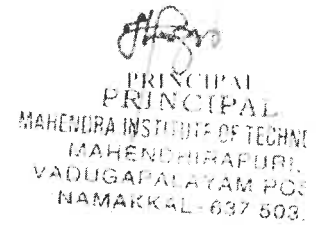 PRINCIPAL
PRINCIPAL
MAHENDRA INSTITUTE OF TECHN
MAHENDHIRAPURI,
VADUGAPALAYAM POS
NAMAKKAL - 637 503.